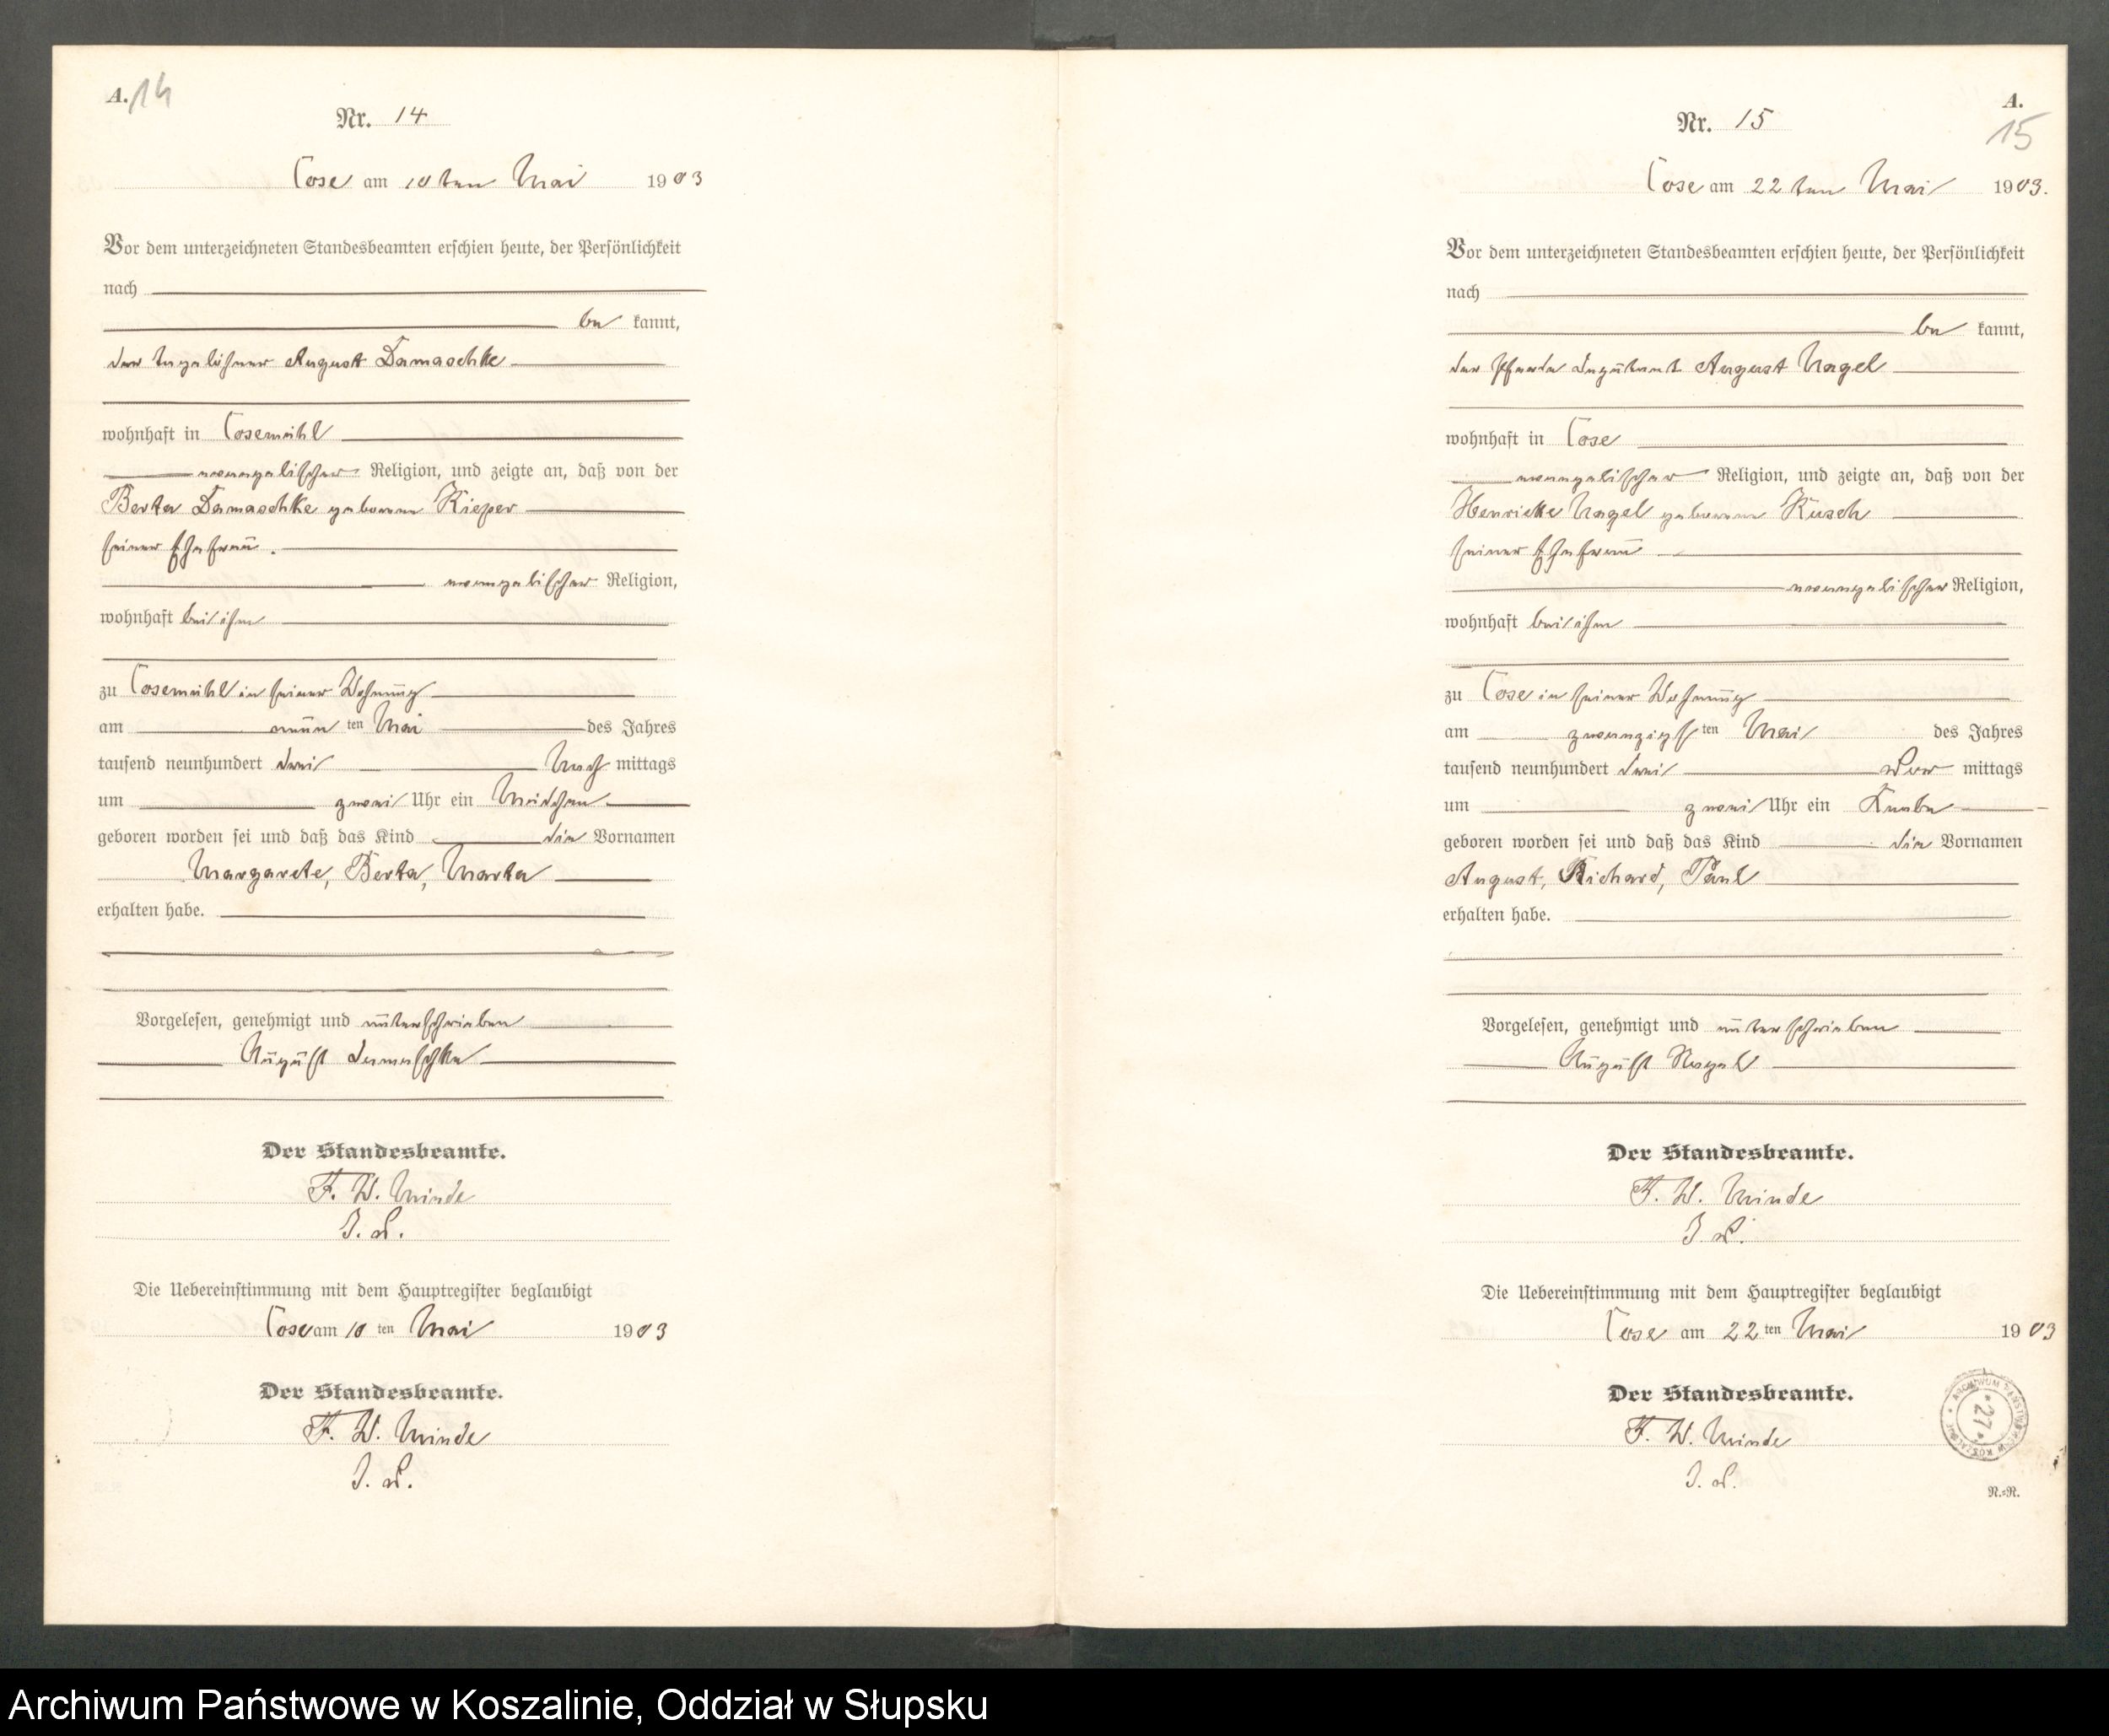 A. 14
Nr. 14
Cose am 10ten Mai 1903
Vor dem unterzeichneten Standesbeamten erschien heute, der Persönlichkeit
nach
be kannt,
der Tagelöhner August Damaschke
wohnhaft in Cosemühl
evangelischer Religion, und zeigte an, daß von der
Berta Damaschke geborene Rieper
seiner Ehefrau.
evangelischer Religion,
wohnhaft bei ihm
zu Cosemühl in seiner Wohnung
am neun ten Mai des Jahres
tausend neunhundert drei Nach mittags
um zwei Uhr ein Mädchen
geboren worden sei und daß das Kind die Vornamen
Margarete, Berta, Marta
erhalten habe.
Vorgelesen, genehmigt und unterschrieben
August Damaschke
Der Standesbeamte.
F. W. Minde
I. V.
Die Uebereinstimmung mit dem Hauptregister beglaubigt
Cose am 10 ten Mai 1903
Der Standesbeamte.
F. W. Minde
I. V.
A.
15
Nr. 15
Cose am 22ten Mai 1903.
Vor dem unterzeichneten Standesbeamten erschien heute, der Persönlichkeit
nach
be kannt,
der Pferde Deputant August Nagel
wohnhaft in Cose
evangelischer Religion, und zeigte an, daß von der
Henriette Nagel geborene Kusch
seiner Ehefrau
evangelischer Religion,
wohnhaft bei ihm
zu Cose in seiner Wohnung
am zwanzigs ten Mai des Jahres
tausend neunhundert drei Vor mittags
um zwei Uhr ein Knabe
geboren worden sei und daß das Kind die Vornamen
August, Richard, Paul
erhalten habe.
Vorgelesen, genehmigt und unterschrieben
August Nagel
Der Standesbeamte.
F. W. Minde
I. V.
Die Uebereinstimmung mit dem Hauptregister beglaubigt
Cose am 22 ten Mai 1903
Der Standesbeamte.
F. W. Minde
I. V.
ARCHIWUM PAŃSTWOWE W KOSZALINIE
* 27 *
N.=R.
Archiwum Państwowe w Koszalinie, Oddział w Słupsku